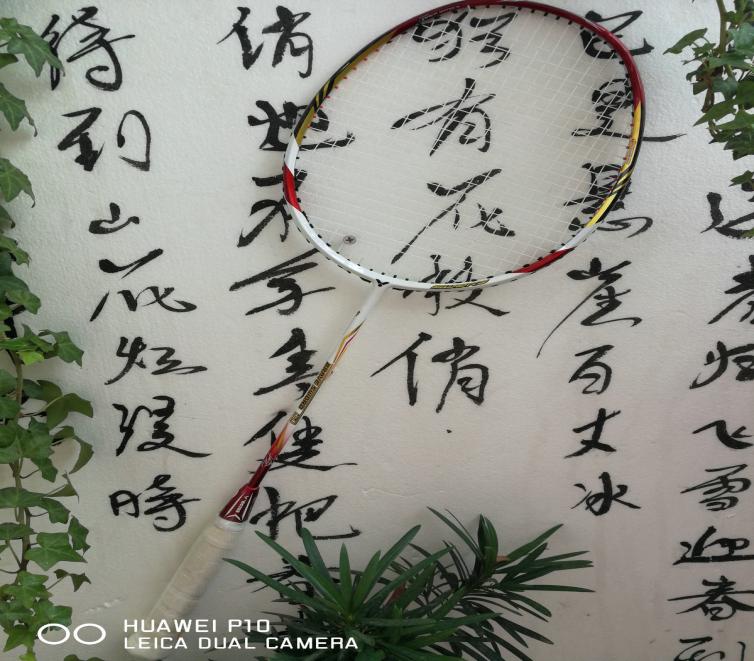 春归飞雪迎春到
已是悬崖百丈冰
犹有花枝俏
俏也不争春只把
待到山花烂漫時
VICTOR
HUAWEI P10
LEICA DUAL CAMERA